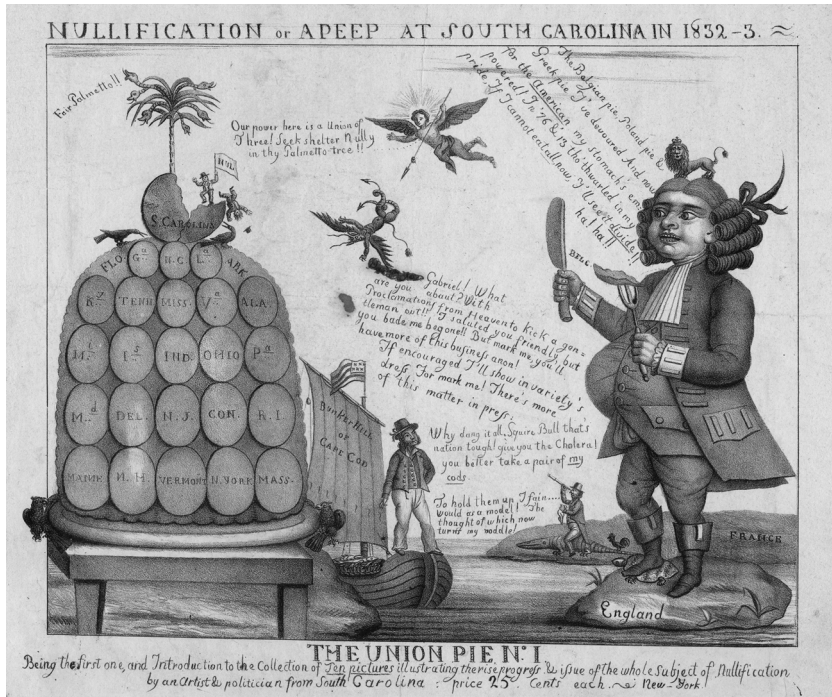 NULLIFICATION or A PEEP AT SOUTH CAROLINA IN 1832-3.
Fair Palmetto!!
Our power here is a Union of
Three! Seek shelter Nully
in thy Palmetto-tree!!
NUL
S. CAROLINA
FLO. Ga N.C. La ARK
Ky TENN MISS. Va ALA.
Mi Is IND. OHIO Pa
Md DEL. N.J. CON. R.I.
MAINE N.H. VERMONT N.YORK MASS.
The Belgian pie, Poland pie &
Greek pie I've devoured And now
for the American, my stomach's em
powered! In '76 & '13 tho' thwarted in my
pride If I cannot eat all now, I'll see it divide!!
ha! ha!!
BELG.
Gabriel! What
are you about? With
Proclamations from Heaven to Kick a gen-
tleman out!! I saluted you friendly, but
you bade me begone!! But mark me, you'll
have more of this business anon!
If encouraged I'll show in variety's
dress, For mark me! There's more
of this matter in press:
BUNKER HILL
or
CAPE COD
Why dang it all, Squire Bull that's
nation tough! give you the Cholera!
you better take a pair of my
cods.
To hold them up I fain....
would as a model! The
thought of which now
turns my noddle!
FRANCE
England
THE UNION PIE No. 1
Being the first one, and Introduction to the Collection of Ten pictures illustrating the rise progress & issue of the whole Subject of Nullification
by an Artist & politician from South Carolina : price 25 Cents each. New-York.